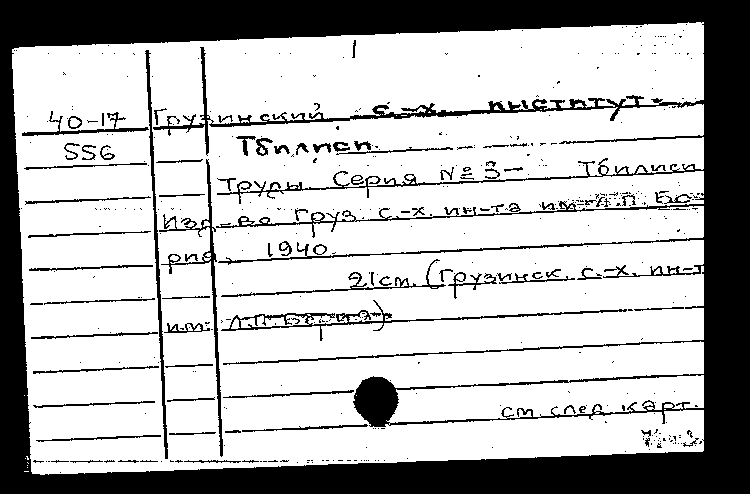 40-17 Грузинский с.-х. институт.
556 Тбилиси.
Труды. Серия № 3— Тбилиси
Изд-во Груз с.-х. ин-та им. Л.П. Бе-
рия, 1940.
21см. (Грузинск. с.-х. ин-т
им. Л.П. Берия)
см. след. карт.